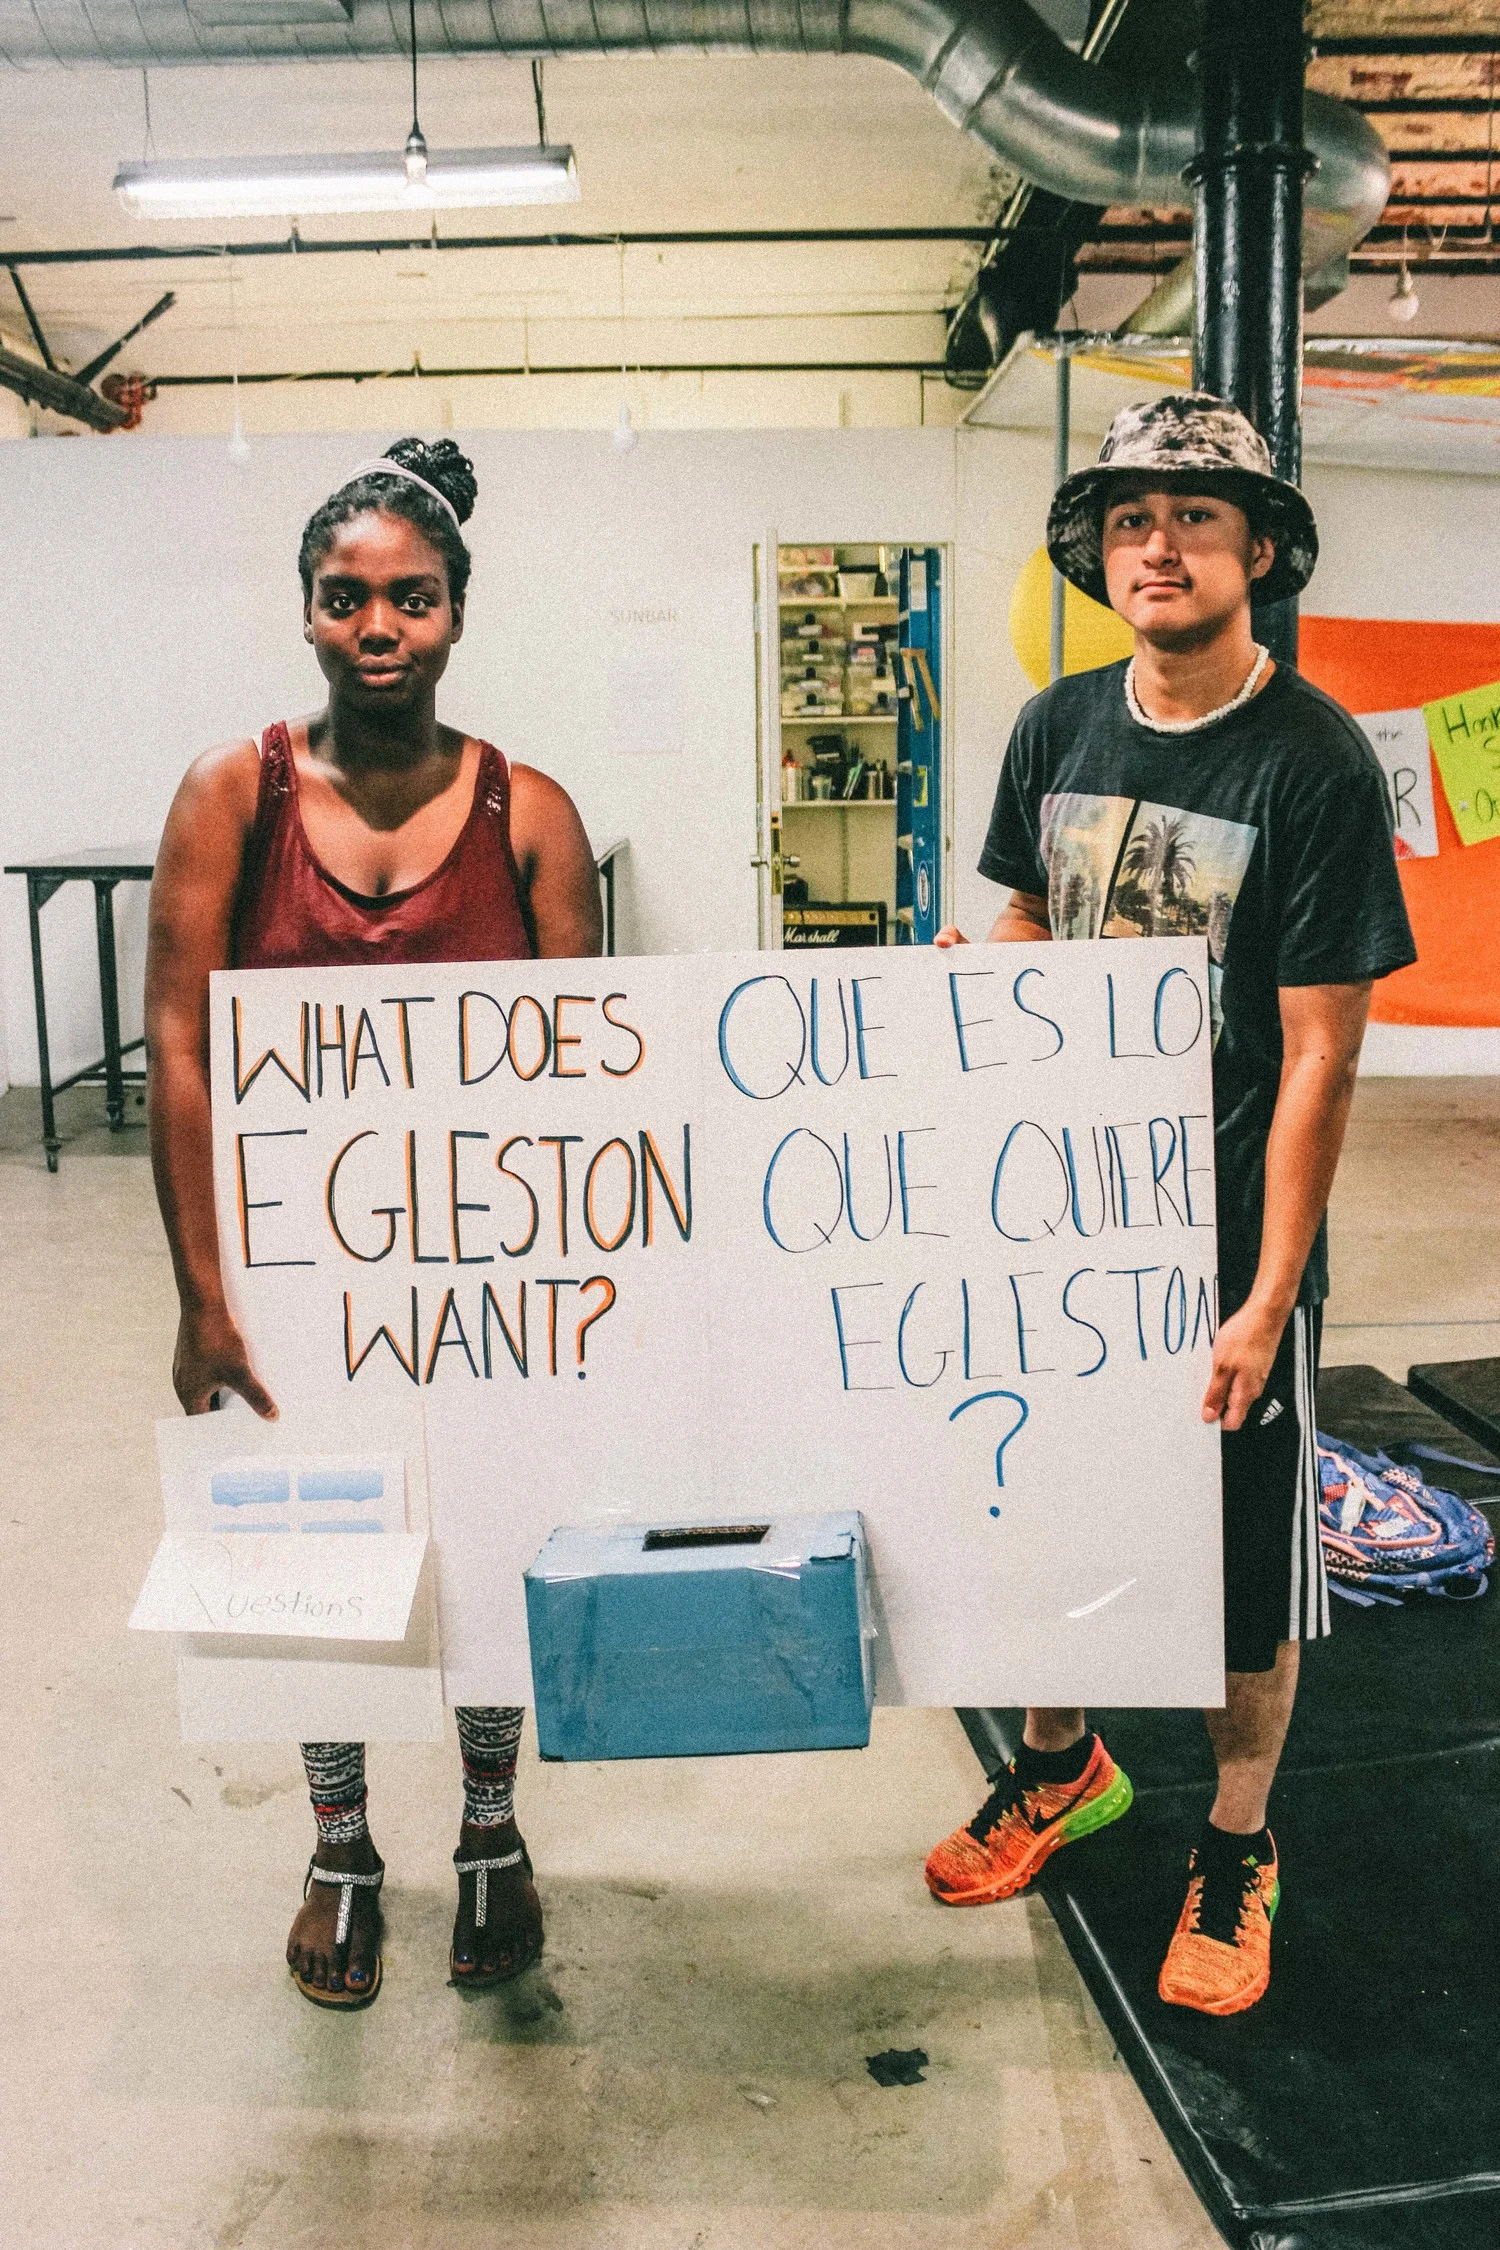 WHAT DOES
EGLESTON
WANT?
QUE ES LO
QUE QUIERE
EGLESTON
?
Questions
SUNBAR
Marshall
the
R